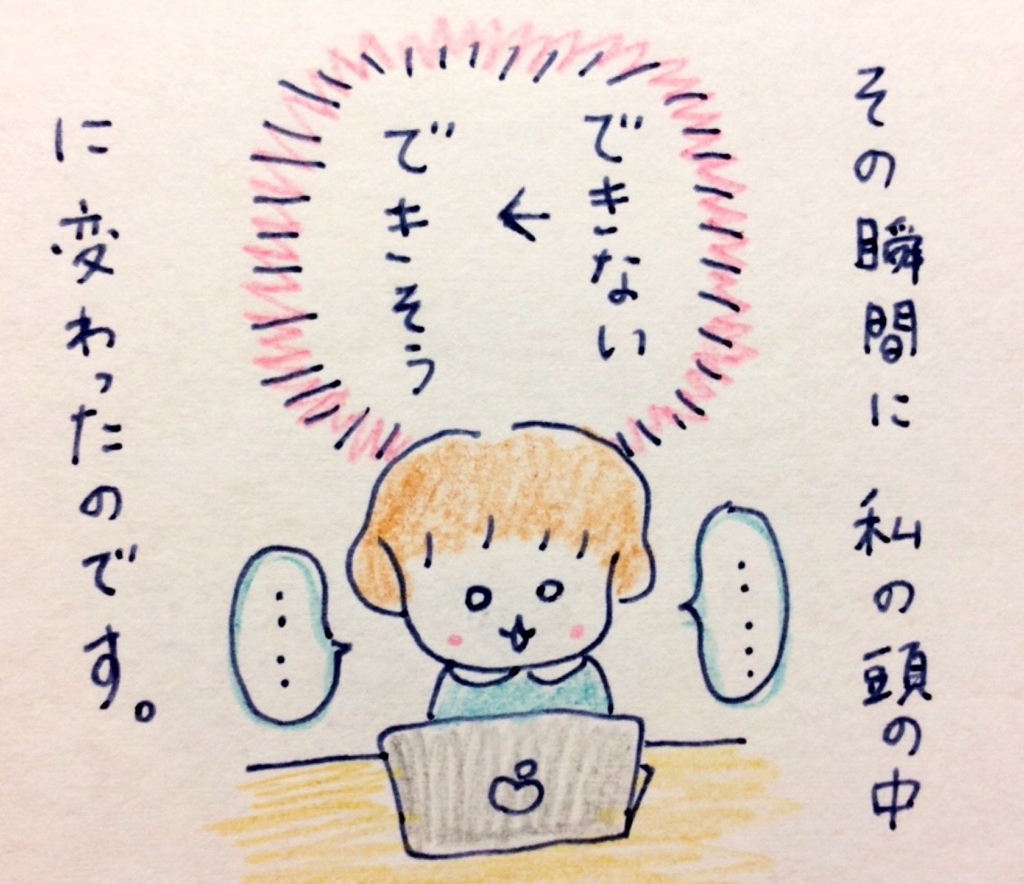 その瞬間に私の頭の中
できない
←
できそう
に変わったのです。
・・・・
・・・・